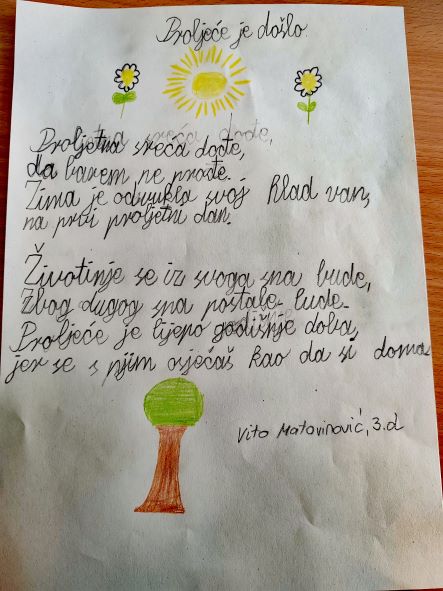 Proljeće je došlo.
Proljetna sreća dođe,
da barem ne prođe.
Zima je odvukla svoj hlad van,
na prvi proljetni dan.
Životinje se iz svoga sna bude,
zbog dugog sna postale lude.
Proljeće je lijepo godišnje doba,
jer se s njim osjećaš kao da si doma.
Vito Matovinović, 3.d